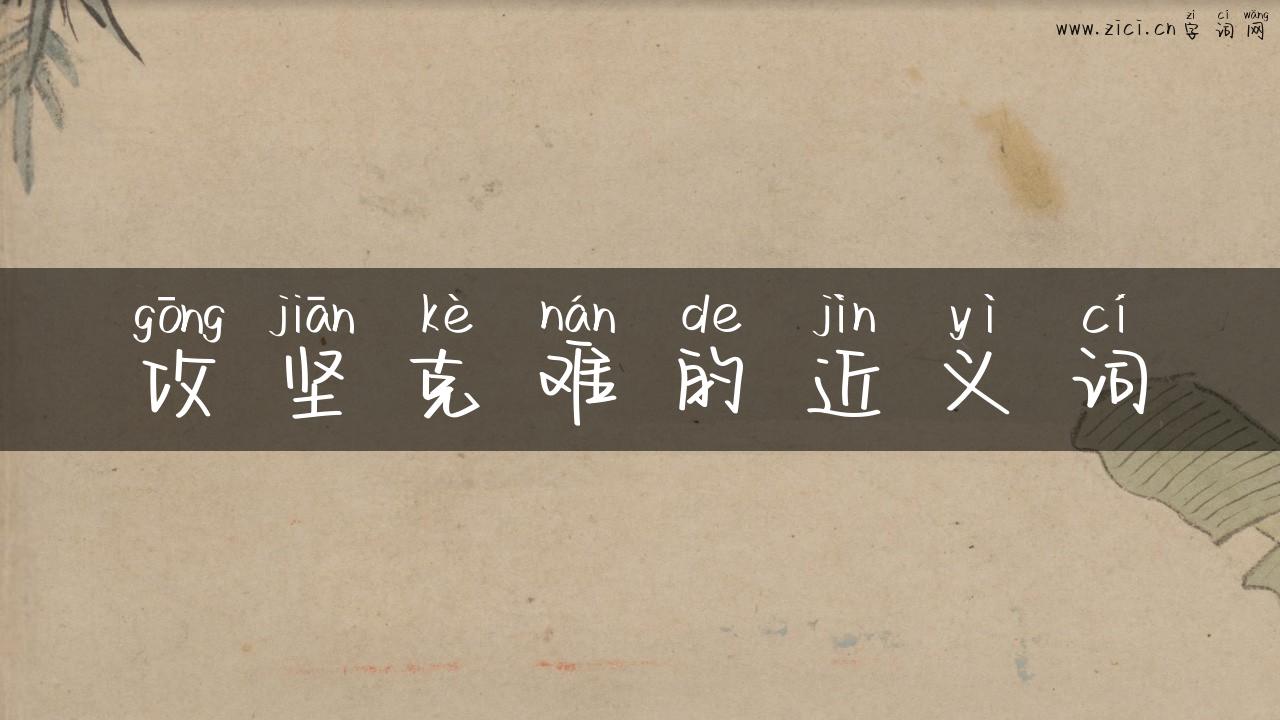 zì cí wǎng
www.zici.cn 字 词 网
gōng jiān kè nán de jìn yì cí
攻 坚 克 难 的 近 义 词